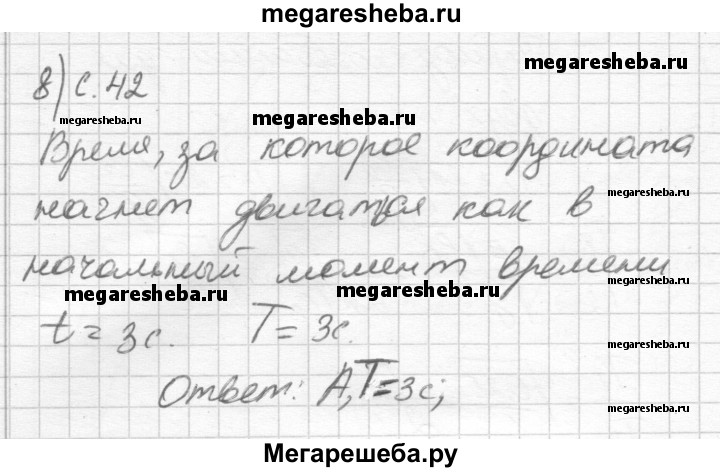 megaresheba.ru
8) с. 42
megaresheba.ru
megaresheba.ru
megaresheba.ru
Время, за которое координата
начнет двигатся как в
megaresheba.ru
начальный момент времени
megaresheba.ru
megaresheba.ru
t = 3с. T = 3с.
megaresheba.ru
Ответ: А, T=3с;
megaresheba.ru
Мегарешеба.ру